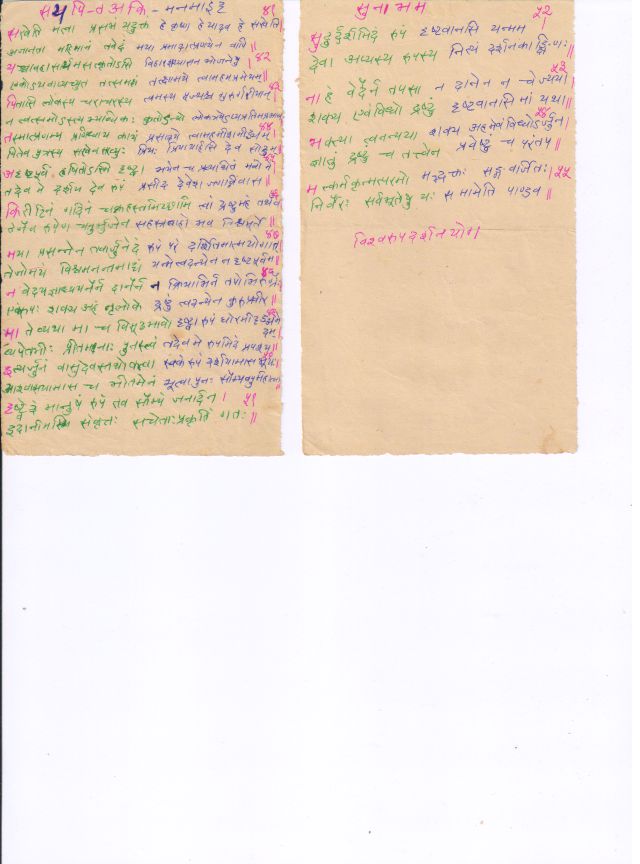 स य पि-त अ कि - म न मा इ ह ४१
सखेति मत्वा प्रसभं यदुक्तं हे कृष्ण हे यादव हे सखेति
अजानता महिमानं तवेदं मया प्रमादात्प्रणयेन वापि ॥
यच्चावहासार्थमसत्कृतोऽसि विहारशय्यासनभोजनेषु । ४२
एकोऽथवाप्यच्युत तत्समक्षं तत्क्षामये त्वामहमप्रमेयम् ॥
पितासि लोकस्य चराचरस्य त्वमस्य पूज्यश्च गुरुर्गरीयान् । ४३
न त्वत्समोऽस्त्यभ्यधिकः कुतोऽन्यो लोकत्रयेऽप्यप्रतिमप्रभाव
तस्मात्प्रणम्य प्रणिधाय कायं प्रसादये त्वामहमीशमीड्यम् । ४४
पितेव पुत्रस्य सखेव सख्युः प्रियः प्रियायार्हसि देव सोढुम् ॥
अदृष्टपूर्वं हृषितोऽस्मि दृष्ट्वा भयेन च प्रव्यथितं मनो मे ।
तदेव मे दर्शय देव रूपं प्रसीद देवेश जगन्निवास ॥
किरीटिनं गदिनं चक्रहस्तमिच्छामि त्वां द्रष्टुमहं तथैव
तेनैव रूपेण चतुर्भुजेन सहस्रबाहो भव विश्वमूर्ते ॥
मया प्रसन्नेन तवार्जुनेदं रूपं परं दर्शितमात्मयोगात् । ४७
तेजोमयं विश्वमनन्तमाद्यं यन्मे त्वदन्येन न दृष्टपूर्वम् ॥
न वेदयज्ञाध्ययनैर्न दानैर्न न क्रियाभिर्न तपोभिरुग्रैः
एवंरूपः शक्य अहं नृलोके द्रष्टुं त्वदन्येन कुरुप्रवीर ॥
मा ते व्यथा मा च विमूढभावो दृष्ट्वा रूपं घोरमीदृङ्ममे
दम् ।
व्यपेतभीः प्रीतमनाः पुनस्त्वं तदेव मे रूपमिदं प्रपश्य ॥
इत्यर्जुनं वासुदेवस्तथोक्त्वा स्वकं रूपं दर्शयामास भूयः ।
आश्वासयामास च भीतमेनं भूत्वा पुनः सौम्यवपुर्महात्मा
दृष्ट्वेदं मानुषं रूपं तव सौम्यं जनार्दन । ५१
इदानीमस्मि संवृत्तः सचेताः प्रकृतिं गतः ॥
सु ना भ म ५२
सुदुर्दर्शमिदं रूपं दृष्टवानसि यन्मम ।
देवा अप्यस्य रूपस्य नित्यं दर्शनकाङ्क्षिणः
५३
नाहं वेदैर्न तपसा न दानेन न चेज्यया ।
शक्य एवंविधो द्रष्टुं दृष्टवानसि मां यथा ॥
५४
भक्त्या त्वनन्यया शक्य अहमेवंविधोऽर्जुन ।
ज्ञातुं द्रष्टुं च तत्त्वेन प्रवेष्टुं च परंतप ॥
मत्कर्मकृन्मत्परमो मद्भक्तः सङ्गवर्जितः । ५५
निर्वैरः सर्वभूतेषु यः स मामेति पाण्डव ॥
विश्वरूपदर्शनयोग